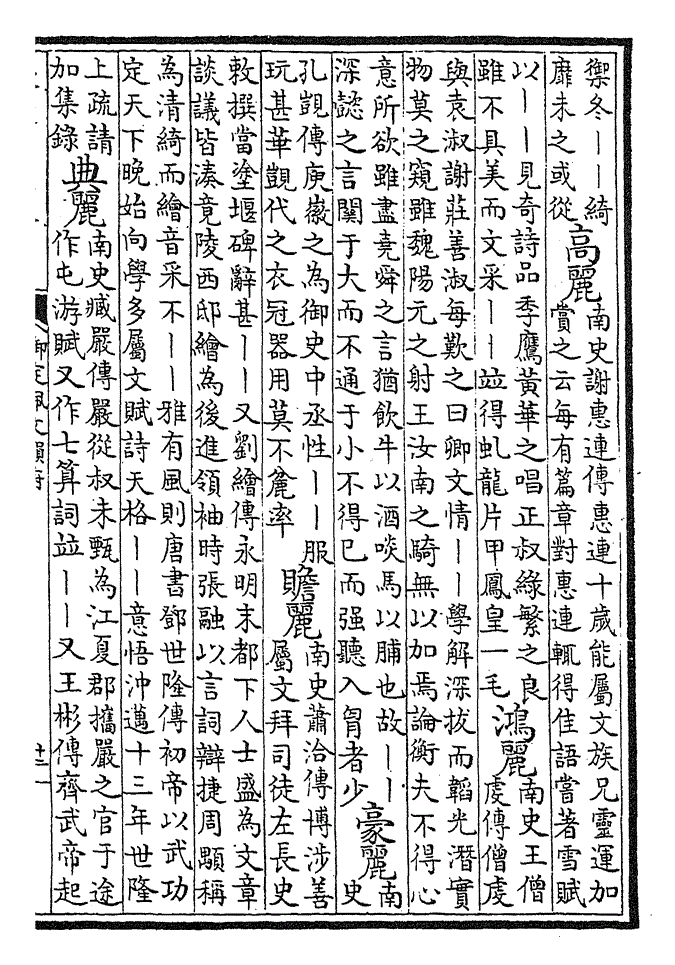 禦冬——綺
靡未之或從
高麗
南史謝惠連傳惠連十歲能屬文族兄靈運加
賞之云每有篇章對惠連輒得佳語嘗著雪賦
以——見奇詩品季鷹黃華之唱正叔綠繁之良
雖不具美而文采——竝得虬龍片甲鳳皇一毛
鴻麗
南史王僧
虔傳僧虔
與袁淑謝莊善淑每歎之曰卿文情——學解深拔而韜光潛實
物莫之窺雖魏陽元之射王汝南之騎無以加焉論衡夫不得心
意所欲雖盡堯舜之言猶飲牛以酒啖馬以脯也故——
深懿之言關于大而不通于小不得已而强聽入胷者少
豪麗
南
史
孔覬傳庾徽之為御史中丞性——服
玩甚華覬代之衣冠器用莫不麄率
贍麗
南史蕭洽傳博涉善
屬文拜司徒左長史
敕撰當塗堰碑辭甚——又劉繪傳永明末都下人士盛為文章
談議皆湊竟陵西邸繪為後進領袖時張融以言詞辯捷周顒稱
為清綺而繪音采不——雅有風則唐書鄧世隆傳初帝以武功
定天下晚始向學多屬文賦詩天格——意悟沖邁十三年世隆
上疏請
加集錄
典麗
南史臧嚴傳嚴從叔未甄為江夏郡攜嚴之官于途
作屯游賦又作七算詞竝——又王彬傳齊武帝起